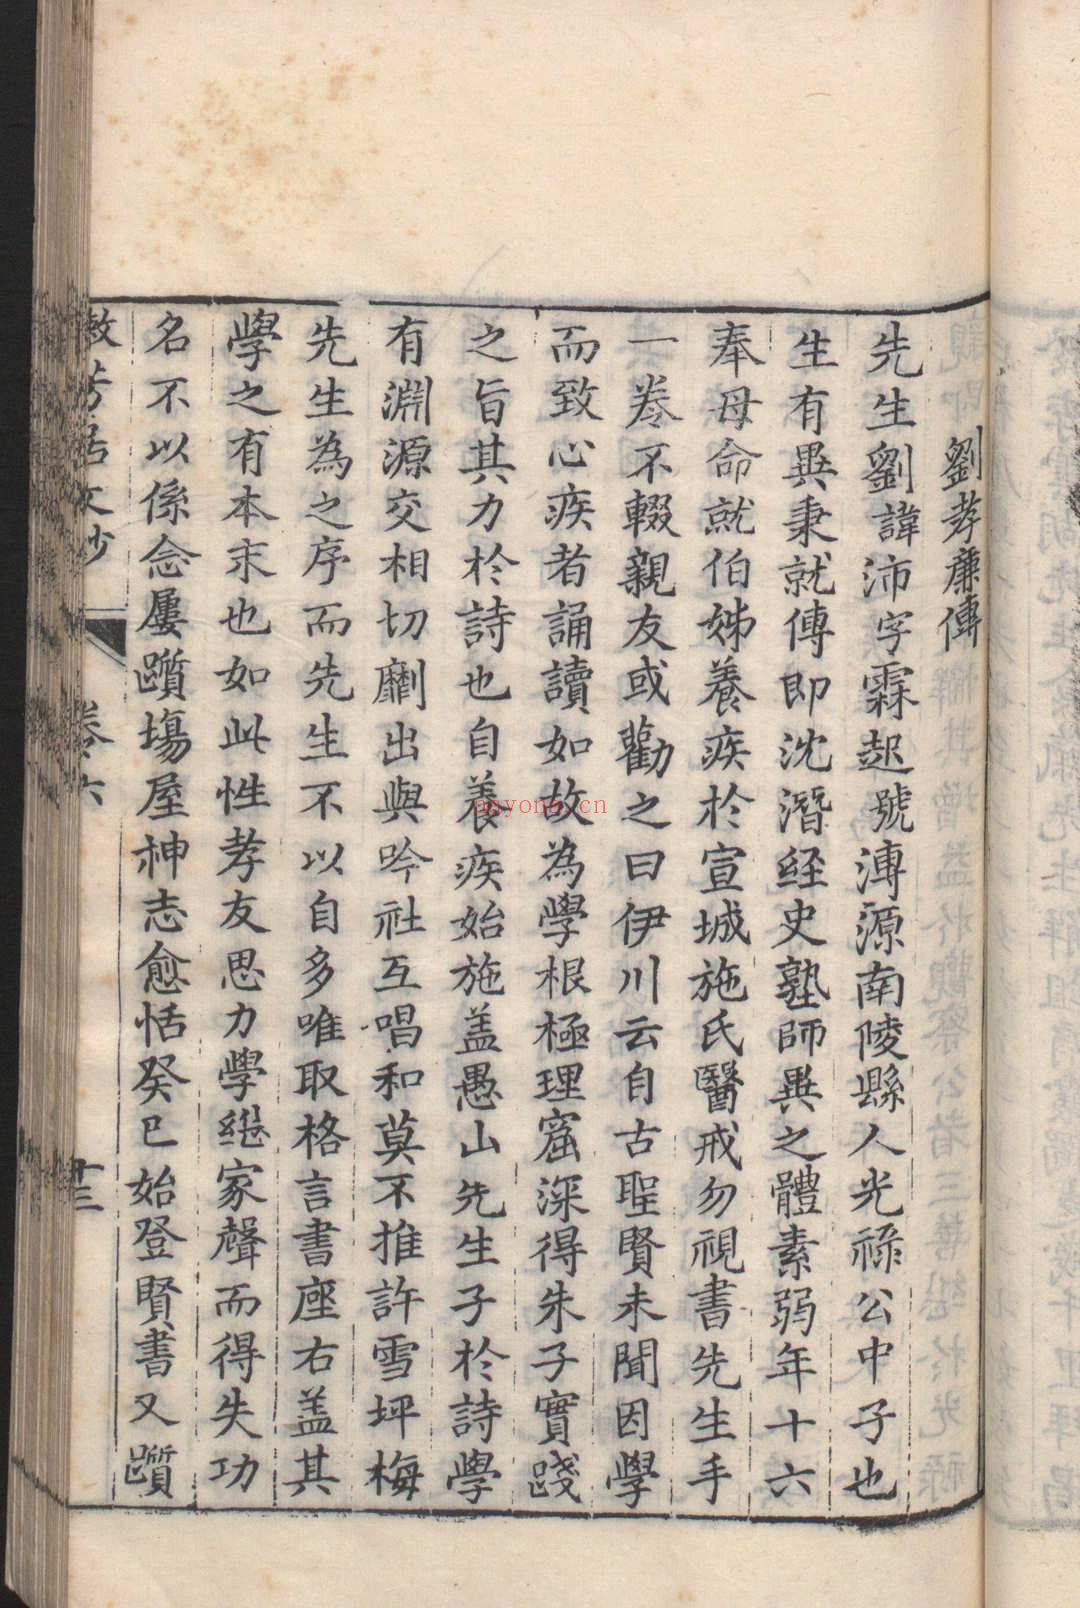 劉孝廉傳
先生劉諱沛字霖起號溥源南陵縣人光祿公中子也
生有異秉就傅即沈潛經史塾師異之體素弱年十六
奉母命就伯姊養疾於宣城施氏醫戒勿視書先生手
一卷不輟親友或勸之曰伊川云自古聖賢未聞因學
而致心疾者誦讀如故為學根極理窟深得朱子實踐
之旨其力於詩也自養疾始施蓋愚山先生子於詩學
有淵源交相切劘出與吟社互唱和莫不推許雪坪梅
先生為之序而先生不以自多唯取格言書座右蓋其
學之有本末也如此性孝友思力學繼家聲而得失功
名不以係念屢躓場屋神志愈恬癸巳始登賢書又躓
敬芳居文鈔 卷六 十三
qqyong.cn